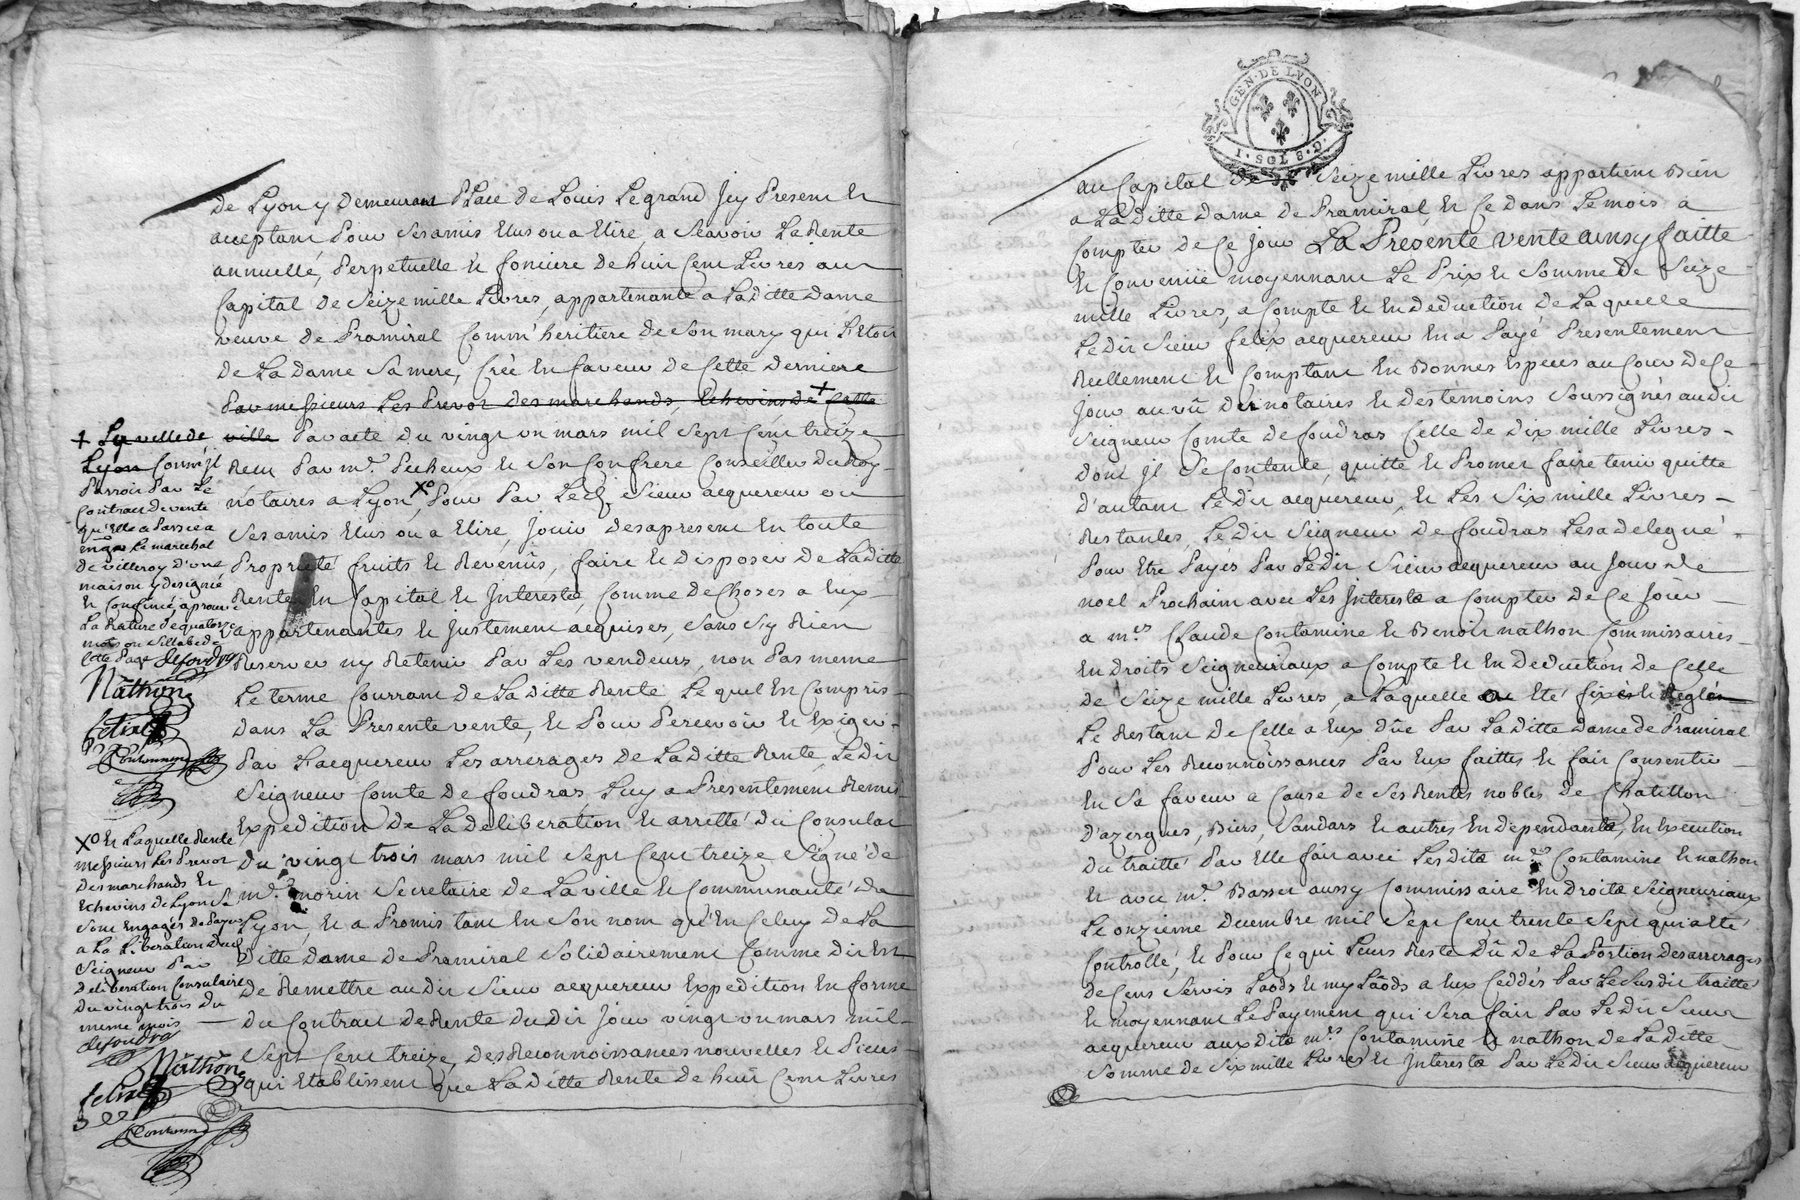 de Lyon y demeurant Place de Louis Legrand Icy Present et
acceptant Pour Ses amis Elus ou a Elire, a Scavoir La Rente
annuelle, Perpetuelle et fonciere de huit Cent Livres au
Capital de Seize mille Livres, appartenante a Laditte dame
veuve de Pramiral Comm' heritiere de Son mary qui L'Etoit
de La dame Sa mere, Créé En faveur de Cette derniere
Par messieurs Les Prevot des marchands, Echevins de + Cette
ville Par acte du vingt un mars mil Sept Cent treize
Recu Par me. Pecheux et Son Confrere Conseillers du Roy
notaires a Lyon, Xo Pour Par Led. Sieur acquereur ou
Ses amis Elus ou a Elire, Jouir des apresent En toute
Proprieté fruits et Revenûs, faire et disposer de Laditte
Rente En Capital et Interests, Comme de Choses a Eux
appartenantes et Justement acquises, Sans S'y Rien
Reserver ny Retenir Par Les vendeurs, non Pas meme
Le terme Courrant de Laditte Rente Lequel En Compris
dans La Presente vente, et Pour Percevoir et Exiger
Par L'acquereur Les arrerages de Laditte Rente, Ledit
Seigneur Comte de foudras Luy a Presentement Remis
Expedition de La deliberation et arretté du Consulat
du vingt trois mars mil Sept Cent treize Signé de
me. morin Secretaire de La ville et Communauté de
Lyon, et a Promis tant En Son nom qu'En Celuy de La
ditte dame de Pramiral Solidairement Comme dit Est
de Remettre audit Sieur acquereur Expedition En forme
du Contract de Rente dudit Jour vingt un mars mil
Sept Cent treize, des Reconnoissances nouvelles et Pieces
qui Etablissent que Laditte Rente de huit Cent Livres
+ La ville de
Lyon Comm'il
Parroit Par Le
Contract de vente
qu'Elle a Passée a
Le marechal
de villeroy d'une
maison y designée
et Confinée aprouvé
La Rature de quatorze
mots ou Sillabe de
Cette Page defoudras
Nathon
felix
Contamine
Xo Et Laquelle Rente
messieurs Les Prevot
des marchands et
Echevins de Lyon Se
Sont Engagés de Payer
a La Liberation dud.
Seigneur Par
deliberation Consulaire
du vingt trois du
meme mois
defoudras
Nathon
felix
Contamine
GEN. DE LYON
I. SOL 8. D.
au Capital de Seize mille Livres appartient Bien
a Laditte dame de Pramiral, et Ce dans Le mois a
Compter de Ce Jour La Presente vente ainsy faitte
et Convenüe moyennant Le Prix et Somme de Seize
mille Livres, a Compte et En deduction de Laquelle
Ledit Sieur felix acquereur En a Payé Presentement
Reellement et Comptant En Bonnes Especes au Cour de Ce
Jour au vû des notaires et des témoins Soussignés audit
Seigneur Comte de foudras Celle de dix mille Livres
dont jl Se Contente, quitte et Promet faire tenir quitte
d'autant Ledit acquereur, et Les Six mille Livres
Restantes, Ledit Seigneur de foudras Les a delegué
Pour Etre Payés Par Ledit Sieur acquereur au Jour de
noel Prochain avec Les Interests a Compter de Ce Jour
a mes. Claude Contamine et Benoit nathon Commissaires
En droits Seigneuriaux a Compte et En deduction de Celle
de Seize mille Livres, a Laquelle ont Eté fixés et Reglés
Le Restant de Celle a Eux Dûe Par Laditte dame de Pramiral
Pour Les Reconnoissances Par Eux faittes et fait Consentir
En Sa faveur a Cause de Ses Rentes nobles de Chatillon
d'azergues, Biers, Sandars et autres En dependants, En Execution
du traitté Par Elle fait avec Lesdits mes Contamine et nathon
et avec me. Basset aussy Commissaire En droits Seigneuriaux
Le onzieme decembre mil Sept Cent trente Sept qui a Eté
Controllé, et Pour Ce qui Leurs Reste Dû de La Portion des arrerages
de Cens Servis Laods et my Laods a Eux Ceddés Par Le Susdit traitté
et moyennant Le Payement qui Sera fait Par Ledit Sieur
acquereur auxdits mes. Contamine et nathon de Laditte
Somme de Six mille Livres et Interests Par Ledit Sieur acquereur